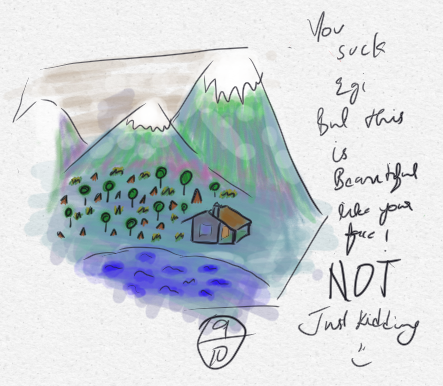 You
suck
Egi
But this
is
Beautiful
like your
face!
NOT
Just kidding
9
10